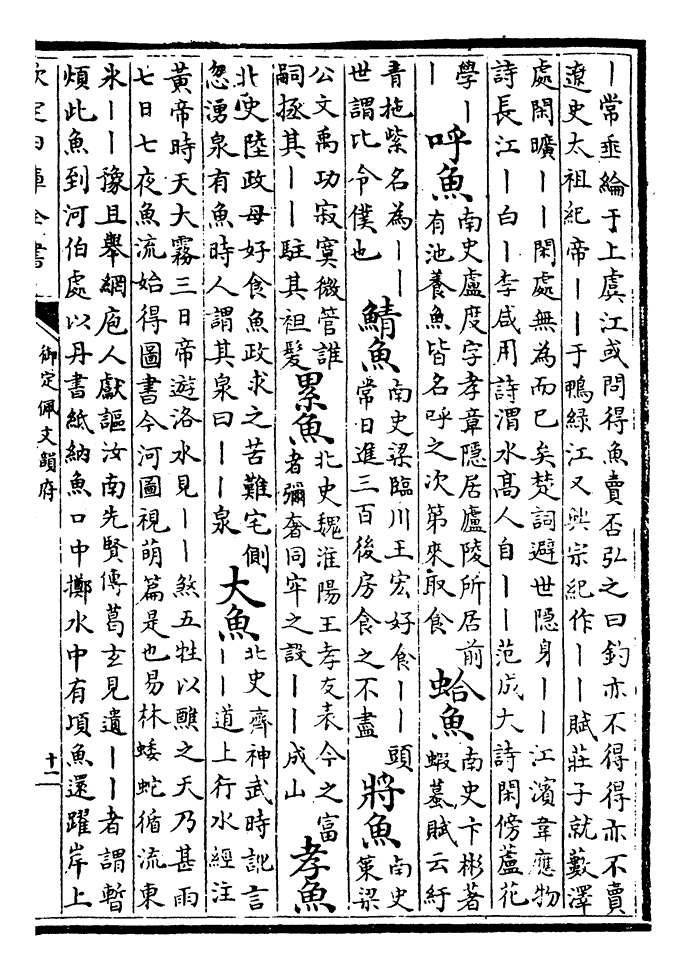 ｜常垂綸于上虞江或問得魚賣否弘之曰釣亦不得得亦不賣
遼史太祖紀帝｜｜于鴨綠江又興宗紀作｜｜賦莊子就藪澤
處閑曠｜｜閑處無為而已矣楚詞避世隱身｜｜江濱韋應物
詩長江｜白｜李咸用詩渭水高人自｜｜范成大詩閑傍蘆花
學｜
｜
呼魚
南史盧度字孝章隱居廬陵所居前
有池養魚皆名呼之次第來取食
蛤魚
南史卞彬著
蝦蟇賦云紆
青拖紫名為｜｜
世謂比令僕也
鯖魚
南史梁臨川王宏好食｜｜頭
常日進三百後房食之不盡
將魚
南史
策梁
公文禹功寂寞微管誰
嗣拯其｜｜駐其袒髮
累魚
北史魏淮陽王孝友表今之富
者彌奢同牢之設｜｜成山
孝魚
北史陸政母好食魚政求之苦難宅側
忽湧泉有魚時人謂其泉曰｜｜泉
大魚
北史齊神武時訛言
｜｜道上行水經注
黃帝時天大霧三日帝遊洛水見｜｜煞五牲以醮之天乃甚雨
七日七夜魚流始得圖書今河圖視萌篇是也易林蜲蛇循流東
求｜｜豫且舉網庖人獻謳汝南先賢傳葛玄見遺｜｜者謂暫
煩此魚到河伯處以丹書紙納魚口中擲水中有頃魚還躍岸上
欽定四庫全書
御定佩文韻府
十一